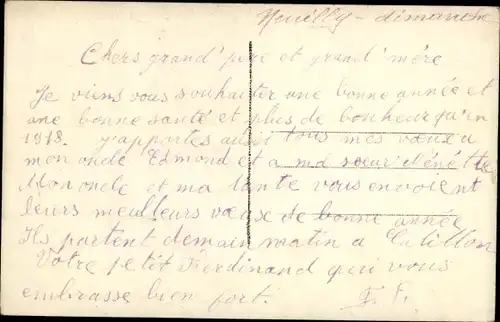 Neuilly - dimanche
Chers grand' père et grand' mère
Je viens vous souhaiter une bonne année et
une bonne santé et plus de bonheur qu'en
1918. j'apportes aussi tous mes vœux a
mon oncle Edmond et a ma sœur
Mon oncle et ma tante vous envoient
leurs meilleurs vœux de bonne année
Ils partent demain matin a Catillon
Votre petit Ferdinand qui vous
embrasse bien fort.